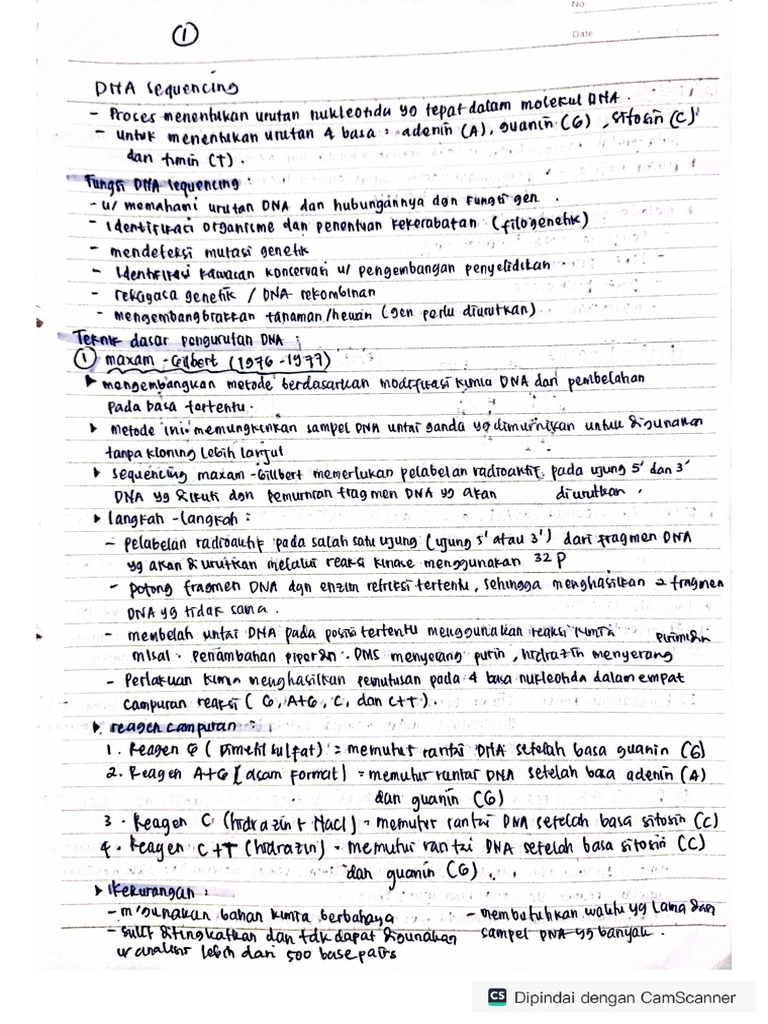 No
Date
1
DNA sequencing
- Proses menentukan urutan nukleotida yg tepat dalam molekul DNA.
- untuk menentukan urutan 4 basa : adenin (A), guanin (G), sitosin (C)
dan timin (T).
Fungsi DNA sequencing :
- u/ memahami urutan DNA dan hubungannya dgn fungsi gen.
- Identifikasi organisme dan penentuan kekerabatan (filogenetik)
- mendeteksi mutasi genetik
- Identifikasi kawasan konservasi u/ pengembangan penyelidikan
- rekayasa genetik / DNA rekombinan
- mengembangbiakkan tanaman/hewan (gen perlu diurutkan)
Teknik dasar pengurutan DNA :
1 maxam - Gilbert (1976 - 1977)
▸ mengembangkan metode berdasarkan modifikasi kimia DNA dan pembelahan
pada basa tertentu.
▸ metode ini memungkinkan sampel DNA untai ganda yg dimurnikan untuk digunakan
tanpa kloning lebih lanjut
▸ sequencing maxam - Gilbert memerlukan pelabelan radioaktif pada ujung 5' dan 3'
DNA yg diikuti dgn pemurnian fragmen DNA yg akan diurutkan.
▸ langkah - langkah :
- pelabelan radioaktif pada salah satu ujung (ujung 5' atau 3') dari fragmen DNA
yg akan diurutkan melalui reaksi kinase menggunakan 32 P
- potong fragmen DNA dgn enzim retriksi tertentu, sehingga menghasilkan 2 fragmen
DNA yg tidak sama.
- membelah untai DNA pada posisi tertentu menggunakan reaksi kimia
misal. penambahan piperdin. DMS menyerang purin, hidrazin menyerang pirimidin
- Perlakuan kimia menghasilkan pemutusan pada 4 basa nukleotida dalam empat
campuran reaksi (G, A+G, C, dan C+T).
▸ reagen campuran :
1. Reagen G (Dimetil sulfat) = memutur rantai DNA setelah basa guanin (G)
2. Reagen A+G [asam format] = memutur rantai DNA setelah basa adenin (A)
dan guanin (G)
3. Reagen C (hidrazin + NaCl) = memutur rantai DNA setelah basa sitosin (C)
4. Reagen C+T (hidrazin) = memutur rantai DNA setelah basa sitosin (C)
dan guanin (G).
▸ Kekurangan :
- m'gunakan bahan kimia berbahaya
- sulit ditingkatkan dan tdk dapat digunakan
u/ analisis lebih dari 500 base pairs
- membutuhkan waktu yg lama dan
sampel DNA yg banyak.
CS Dipindai dengan CamScanner